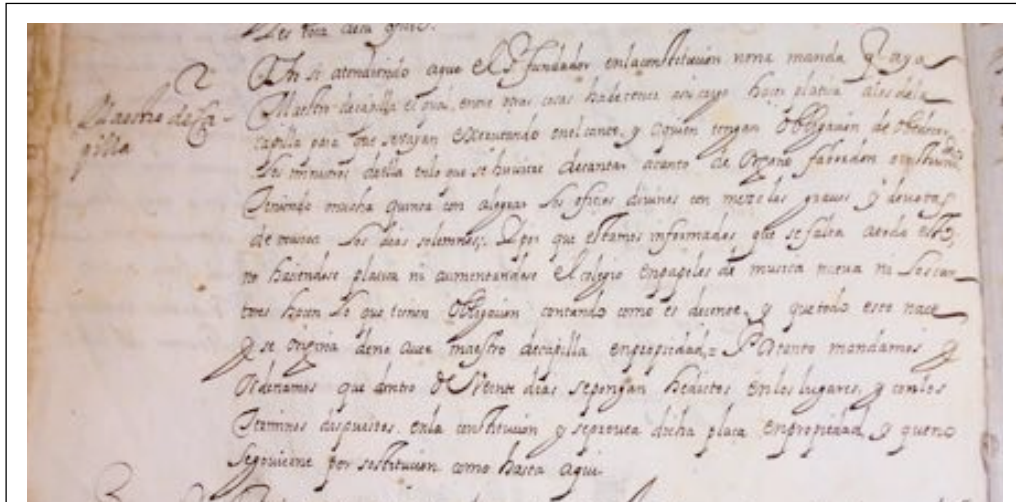 les toca
2
Maestro de Ca-
pilla
Otro si atendiendo aque el Sr fundador enlaconstitucion nona manda q aya
Maestro decapilla el qual, entre otras cosas hadetener asucargo hacer platica alosdela
capilla para que sevayan executando enelcanto, y aquien tengan obligacion de obedecer
los ministros della enlo que se huviere decantar acanto de organo
Teniendo mucha quenta con alegrar los oficios divinos con mezclas graves y devotas
de musica los dias solemnes; y por que estamos informados, que se falta atodo esto,
no haciendose platica ni aumentandose el colegio enpapeles de musica nueva ni loscan-
tores hacen lo que tienen obligacion cantando como es decente, y quetodo esto nace
y se origina deno aver maestro decapilla enpropiedad,= Portanto mandamos y
ordenamos que dentro de veinte dias sepongan hedictos enlos lugares, y conlos
terminos dispuestos enla constitucion y seprovea dicha plaça enpropiedad, y queno
segovierne por sostitucion como hasta aqui.